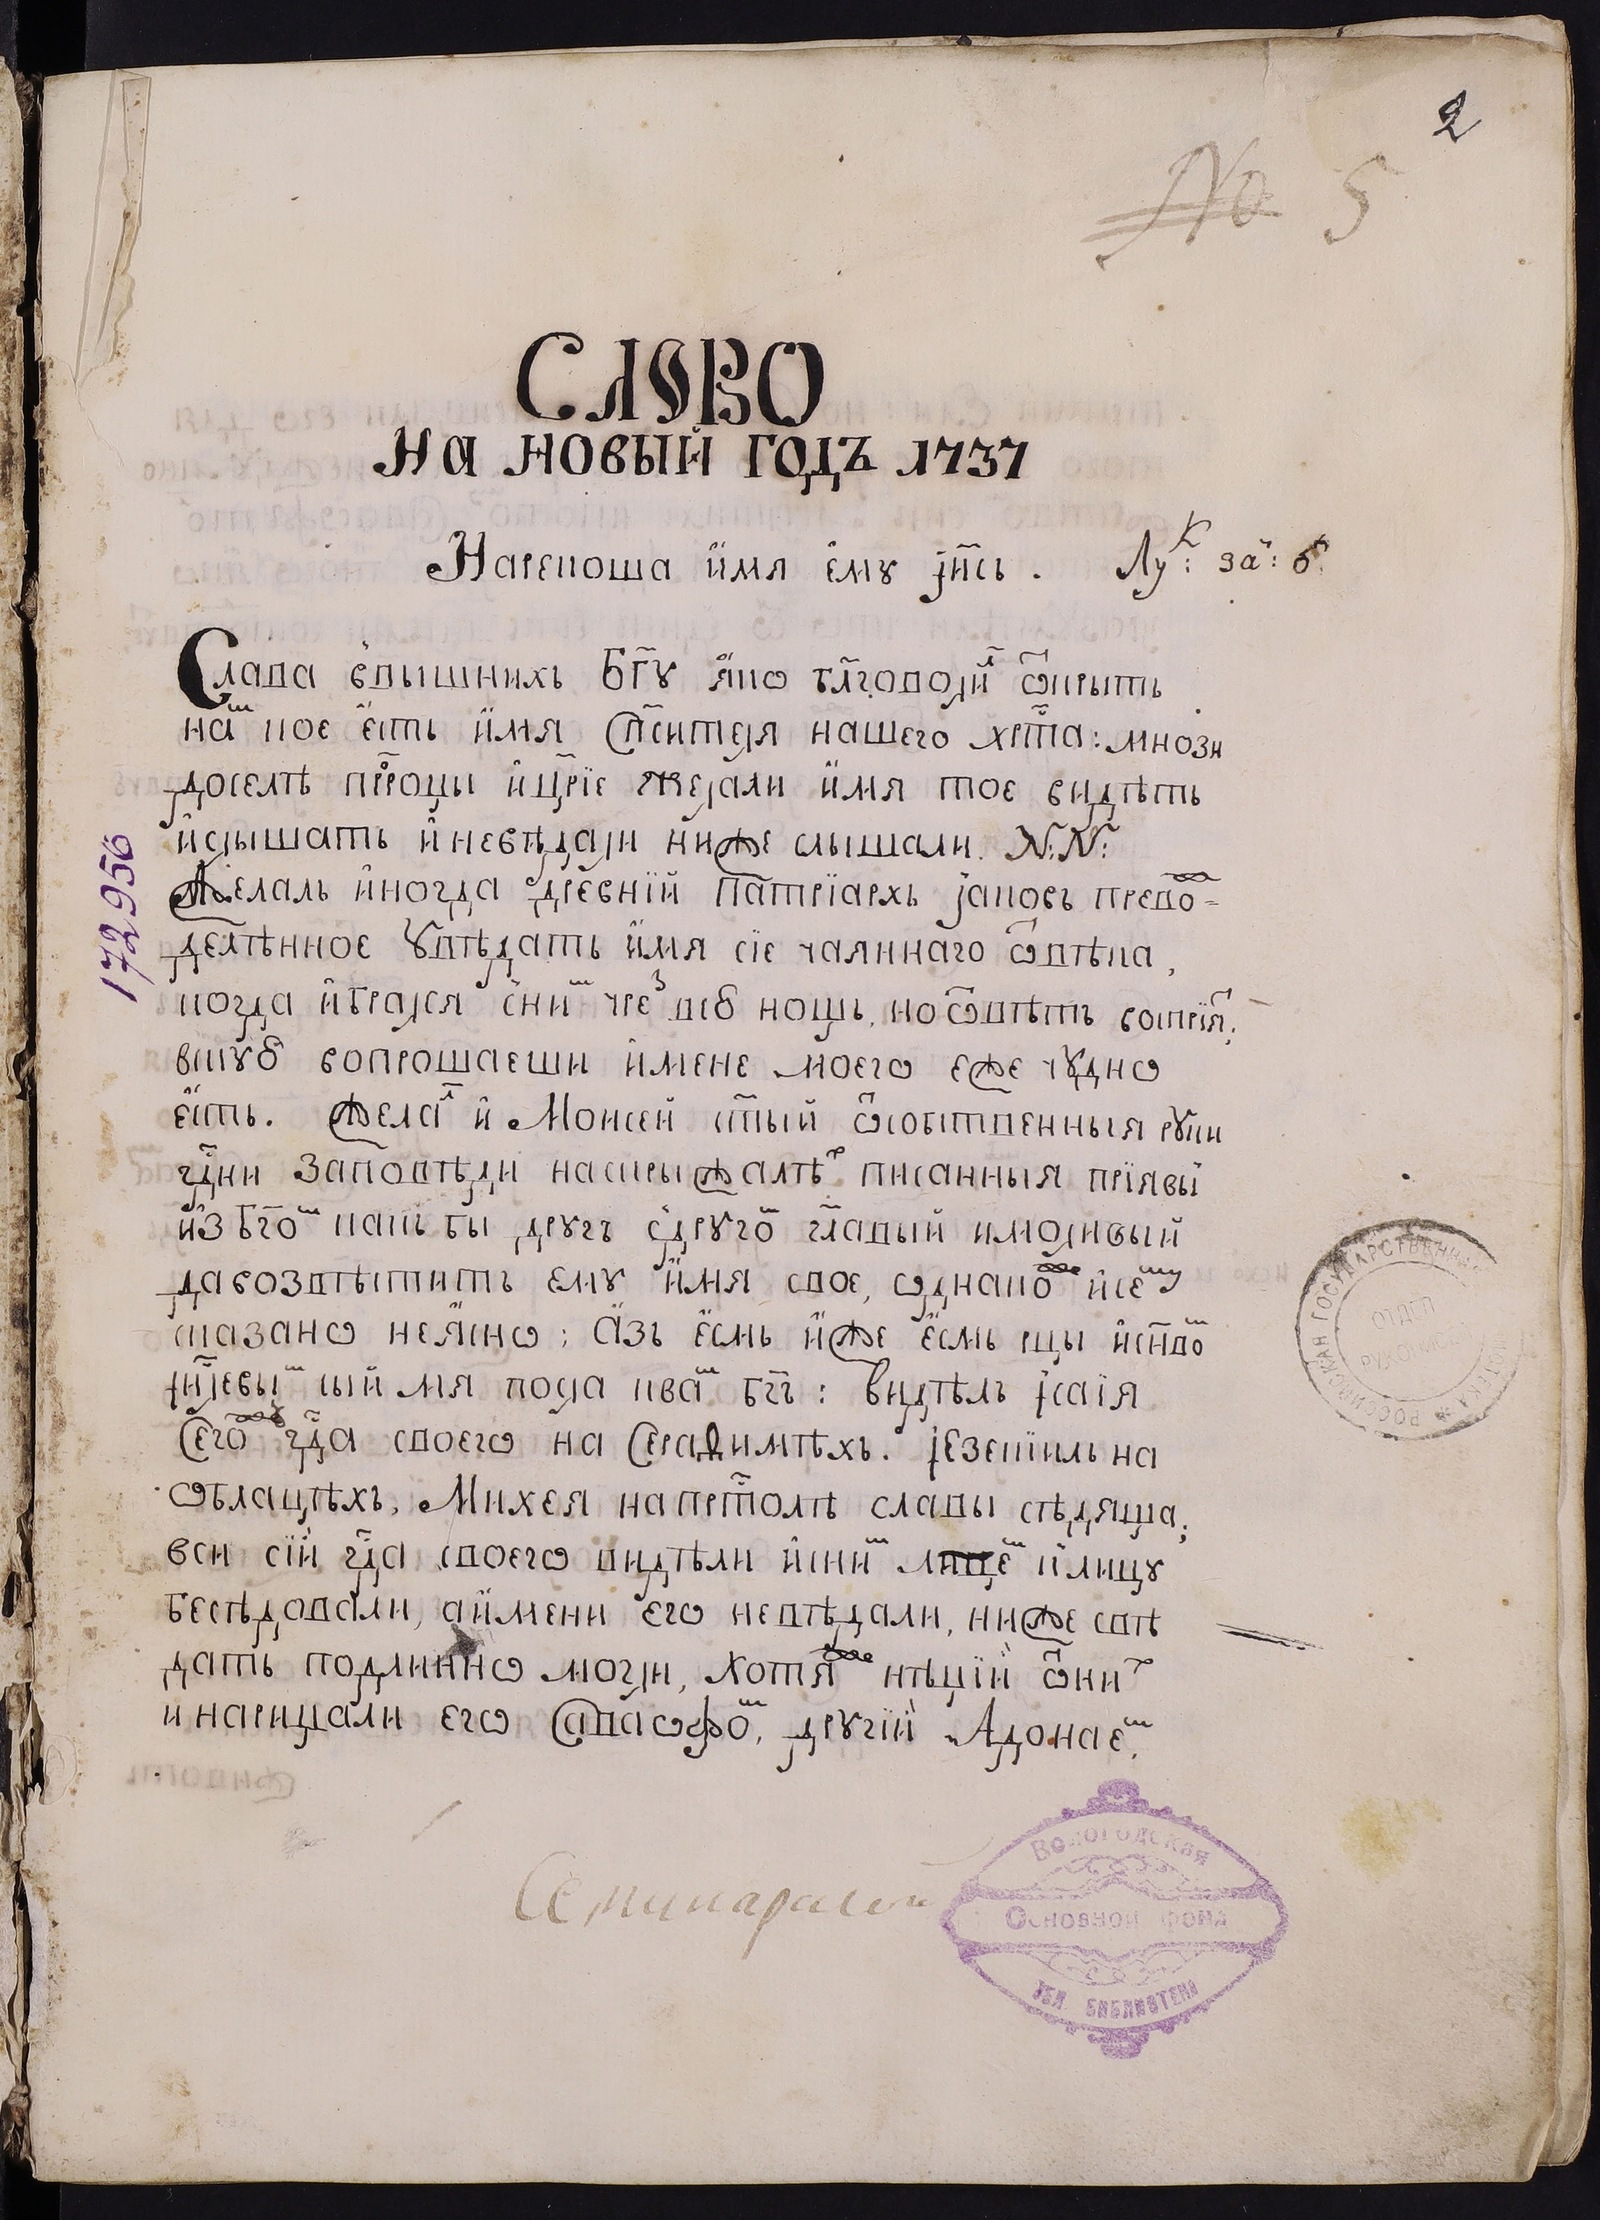 2
№ 5
СЛОВО
На новый годъ 1737
Нарекоша имя ему Іи҃съ. Лук: за: 6:
Слава ввышнихъ Бг҃у яко бл҃говолил ѿкрыть
нам кое есть имя Сп҃сителя нашего хрт҃а: мнози
доселѣ прⷪ҇оцы ицр҃іе желали имя тое видѣть
ислышать иневѣдали ниже слышали. N: N:
Желалъ иногда древній Патріархъ Іаковъ предо=
делѣнное увѣдать имя сіе чаяннаго ѿвѣка,
когда играся сним чрез всю нощь, но ѿвѣтъ воспрія:
вскую вопрошаеши имене моего еже чудно
есть. Желал и Моисей ст҃ый ѿсобственныя руки
гд҃ни заповѣди наскрыжалѣх писанныя пріявый
изБг҃ом какъ бы другъ сдругом гл҃авый имоливый
давозвѣститъ ему имя свое, ѡднакож исему
сказано неясно: Азъ есмь иже есмь рцы ис҃нвом
Іи҃левым сый мя посла квам Бг҃ъ: видѣлъ Ісаія
Сегож гд҃а своего на Серафимѣхъ. Іезекіиль на
ѡблацѣхъ, Михея напрт҃олѣ славы сѣдяща;
вси сіи гд҃а своего видѣли исним лицем клицу
бесѣдовали, аимени его невѣдали, ниже свѣ
дать подлинно могли, хотя нѣціи ѿних
инарицали его Саваоѳом, другіи Адонаем.
172956
Семинарской
Вологодская
Основной фонд
обл. библиотека